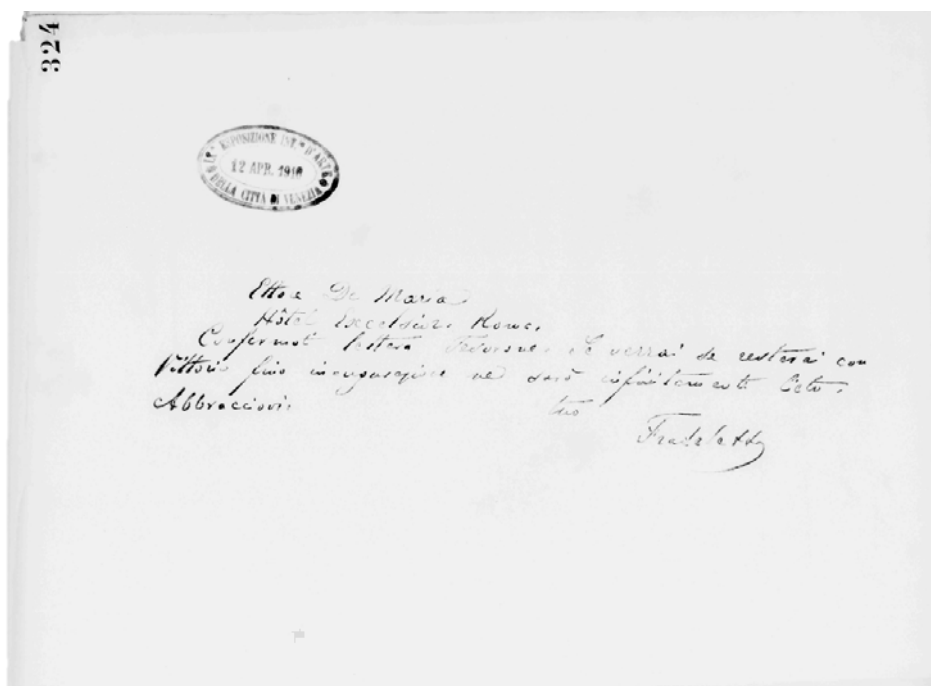 324
IXª ESPOSIZIONE INT.le D'ARTE
12 APR. 1910
DELLA CITTÀ DI VENEZIA
Ettore De Maria
Hôtel Excelsior. Roma.
Confermoti lettera Se verrai se resterai con
Vittorio fino ne sarò infinitamente lieto.
Abbracciovi.
tuo
Fradeletto